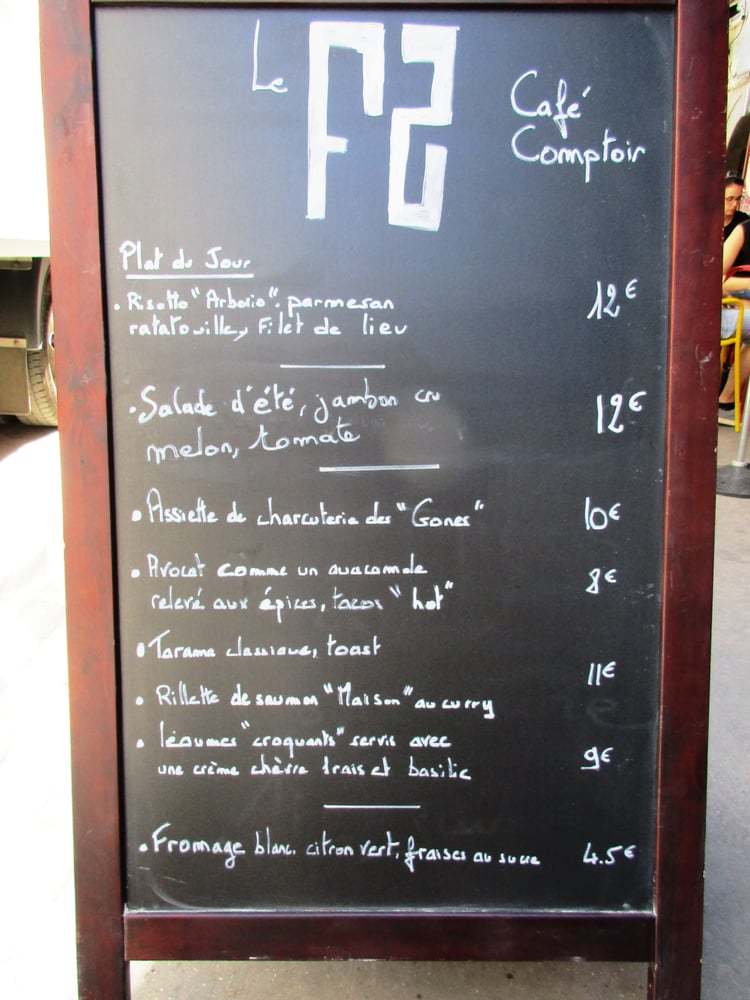 Le F2 Café
Comptoir
Plat du Jour
. Risotto "Arborio". parmesan 12€
ratatouille, Filet de lieu
. Salade d'été, jambon cru 12€
melon, tomate
• Assiette de charcuterie des "Gones" 10€
• Avocat comme un guacamole 8€
relevé aux épices, tacos "hot"
• Tarama classique, toast
11€
• Rillette de saumon "Maison" au curry
• légumes "croquants" servis avec 9€
une crème chèvre frais et basilic
• Fromage blanc. citron vert, fraises au sucre 4.5€